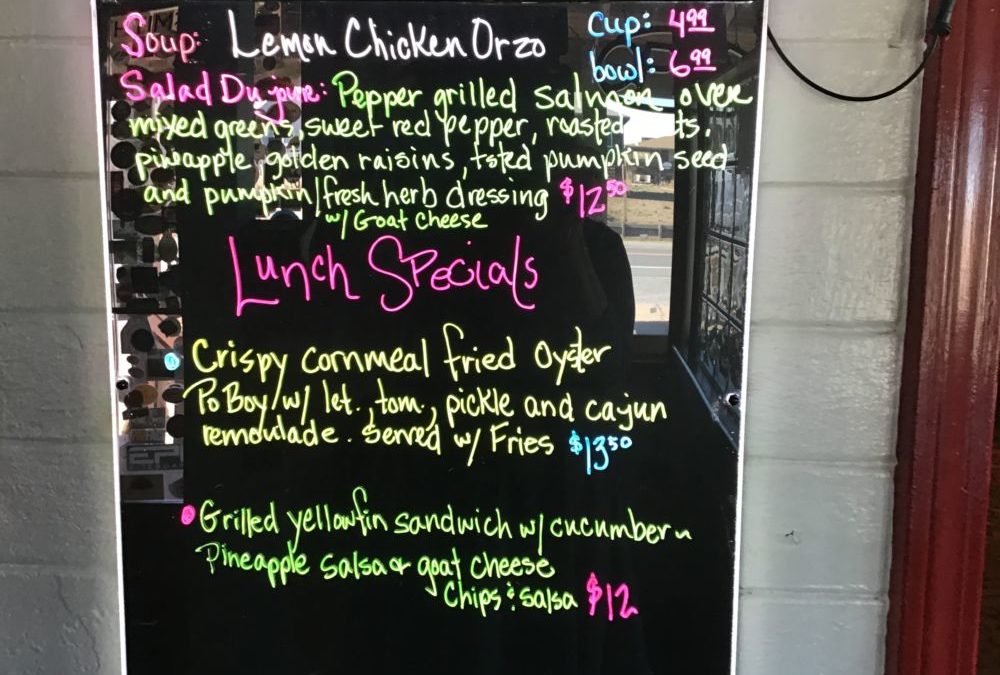 Soup: Lemon Chicken Orzo cup: 4.99
bowl: 6.99
Salad Du jour: Pepper grilled salmon over
mixed greens, sweet red pepper, roasted
pineapple golden raisins, tsted pumpkin seed
and pumpkin/fresh herb dressing $12.50
w/ Goat cheese
Lunch Specials
Crispy cornmeal fried Oyster
Po Boy w/ let., tom., pickle and cajun
remoulade. Served w/ Fries $13.50
Grilled yellowfin sandwich w/ cucumber
Pineapple salsa & goat cheese
Chips & salsa $12